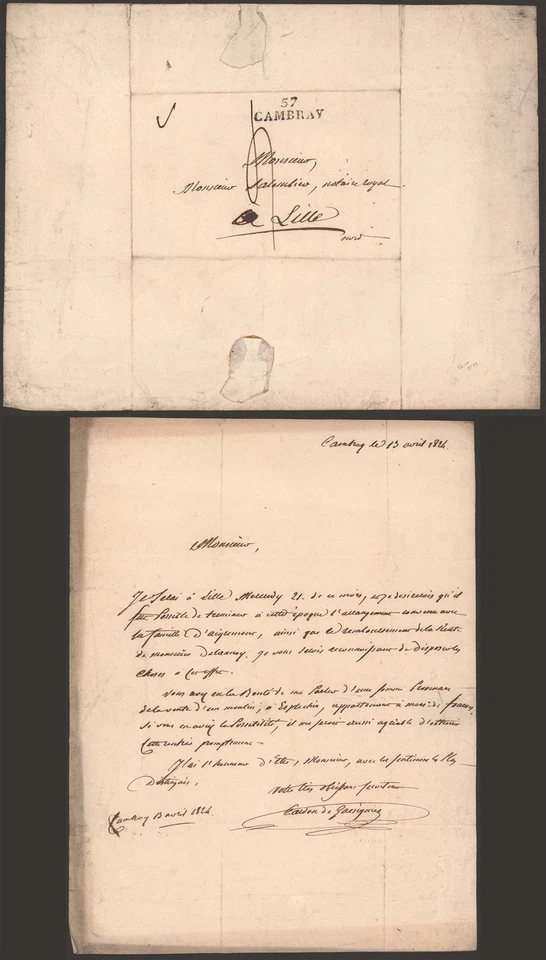 57
CAMBRAY
Monsieur,
Monsieur Salembier, notaire royal
a Lille
nord
Cambray le 13 avril 1824.
Monsieur,
Je Serai à Lille Mercredy 21. de ce mois, et je desirerois qu'il
fut Possible de terminer à cette époque l'arrangement convenu avec
la famille D'aigremont, ainsi que le remboursement de la Rente
de monsieur Delannoy. Je vous serois reconnoissant de disposer les
choses a cet effet.
vous avez eu la Bonté de me Parler d'une somme Provenant
de la vente d'un moulin, à Esplechin, appartenant à mons: de
Si vous en aviez la Possibilité, il me seroit aussi agréable d'obtenir
Cette rentrée promptement.
J'ai l'honneur d'Etre, Monsieur, avec les sentimens les Plus
Distingués,
votre très obéissant serviteur
Cardon de
Cambray 13 avril 1824.